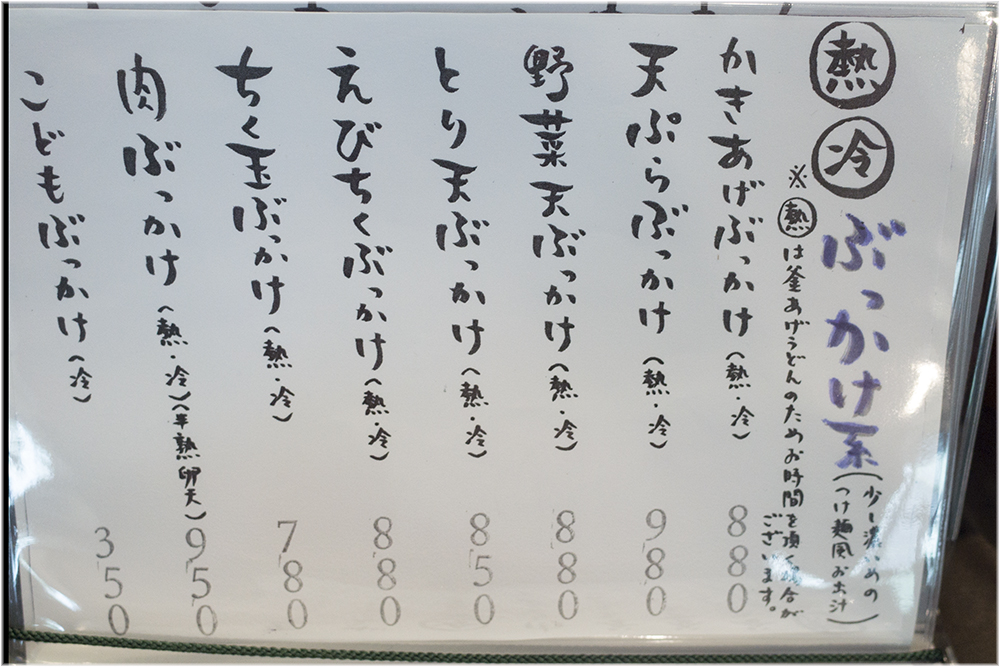 熱 冷 ぶっかけ系(少し濃いめの
つけ麺風お出汁)
※熱は釜あげうどんのためお時間を頂く場合が
ございます。
かきあげぶっかけ(熱・冷) 880
天ぷらぶっかけ(熱・冷) 980
野菜天ぶっかけ(熱・冷) 880
とり天ぶっかけ(熱・冷) 850
えびちくぶっかけ(熱・冷) 880
ちく玉ぶっかけ(熱・冷) 780
肉ぶっかけ(熱・冷)(半熟卵天) 950
こどもぶっかけ(冷) 350